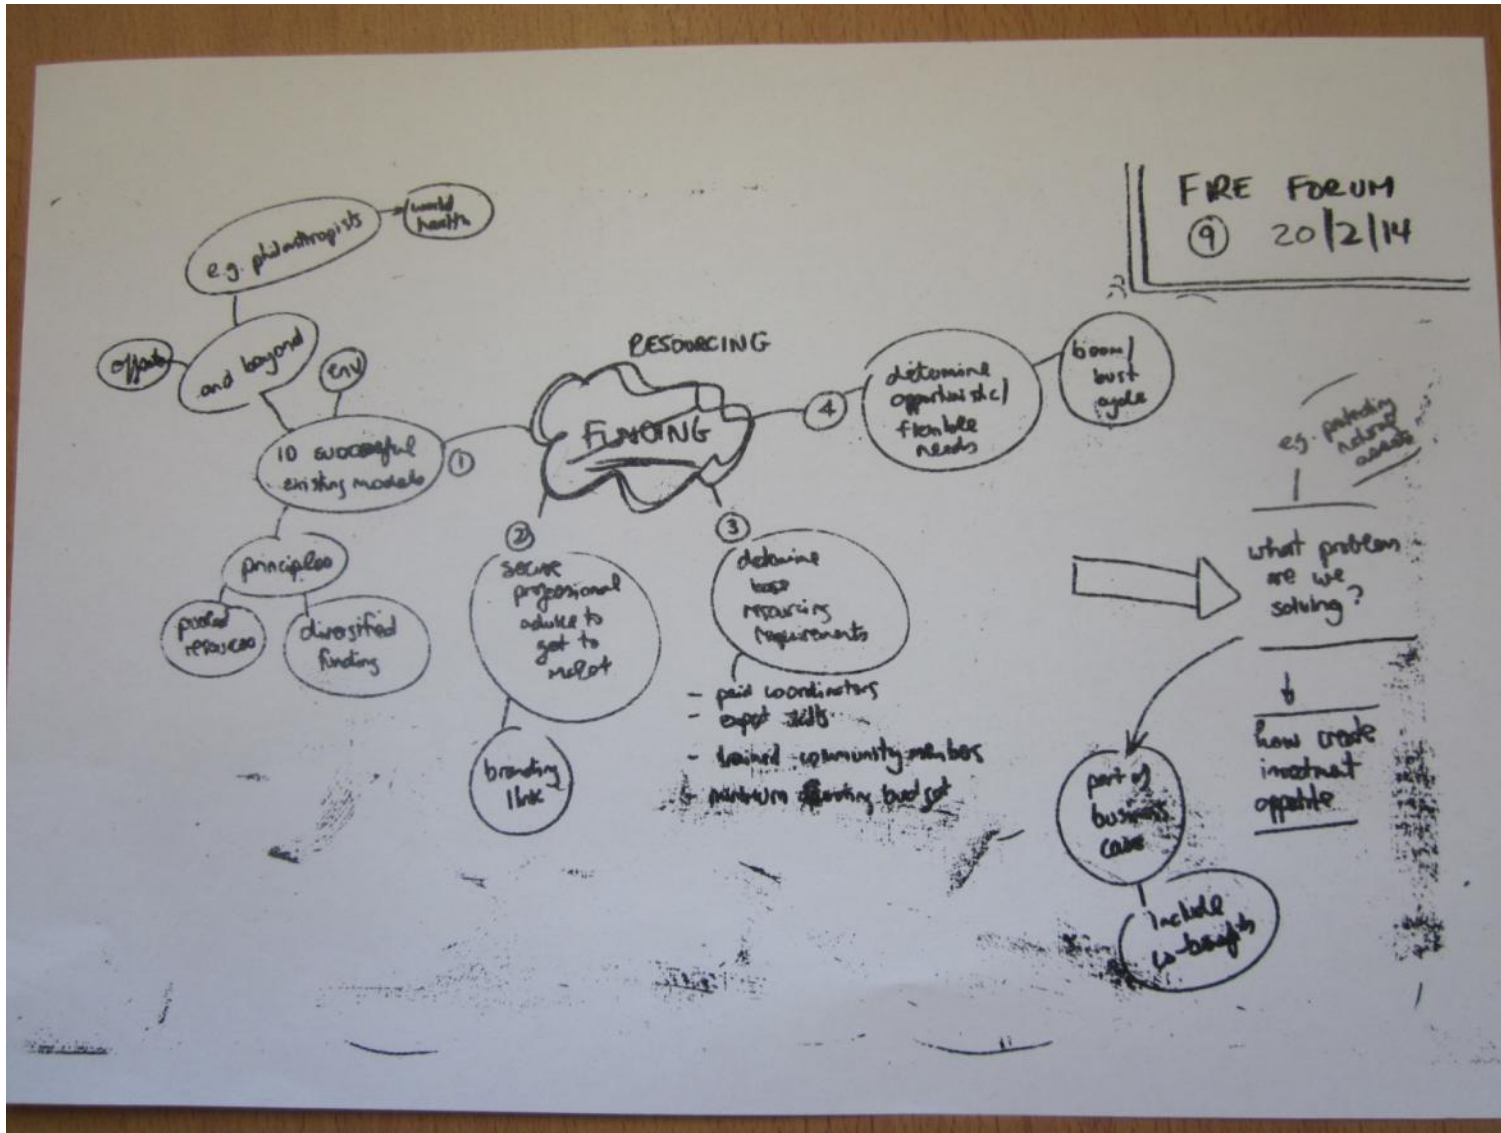 FIRE FORUM
9 20/2/14
RESOURCING
FUNDING
1
ID successful
existing models
env
and beyond
offsets
e.g. philanthropists
world
health
principles
pooled
resources
diversified
funding
2
secure
professional
advice to
get to
market
branding
link
3
determine
base
resourcing
requirements
- paid coordinators
- expert skills
- trained community members
- minimum operating budget
4
determine
opportunistic/
flexible
needs
boom/
bust
cycle
e.g. protecting
natural
assets
what problem
are we
solving?
how create
investment
appetite
part of
business
case
include
co-benefits